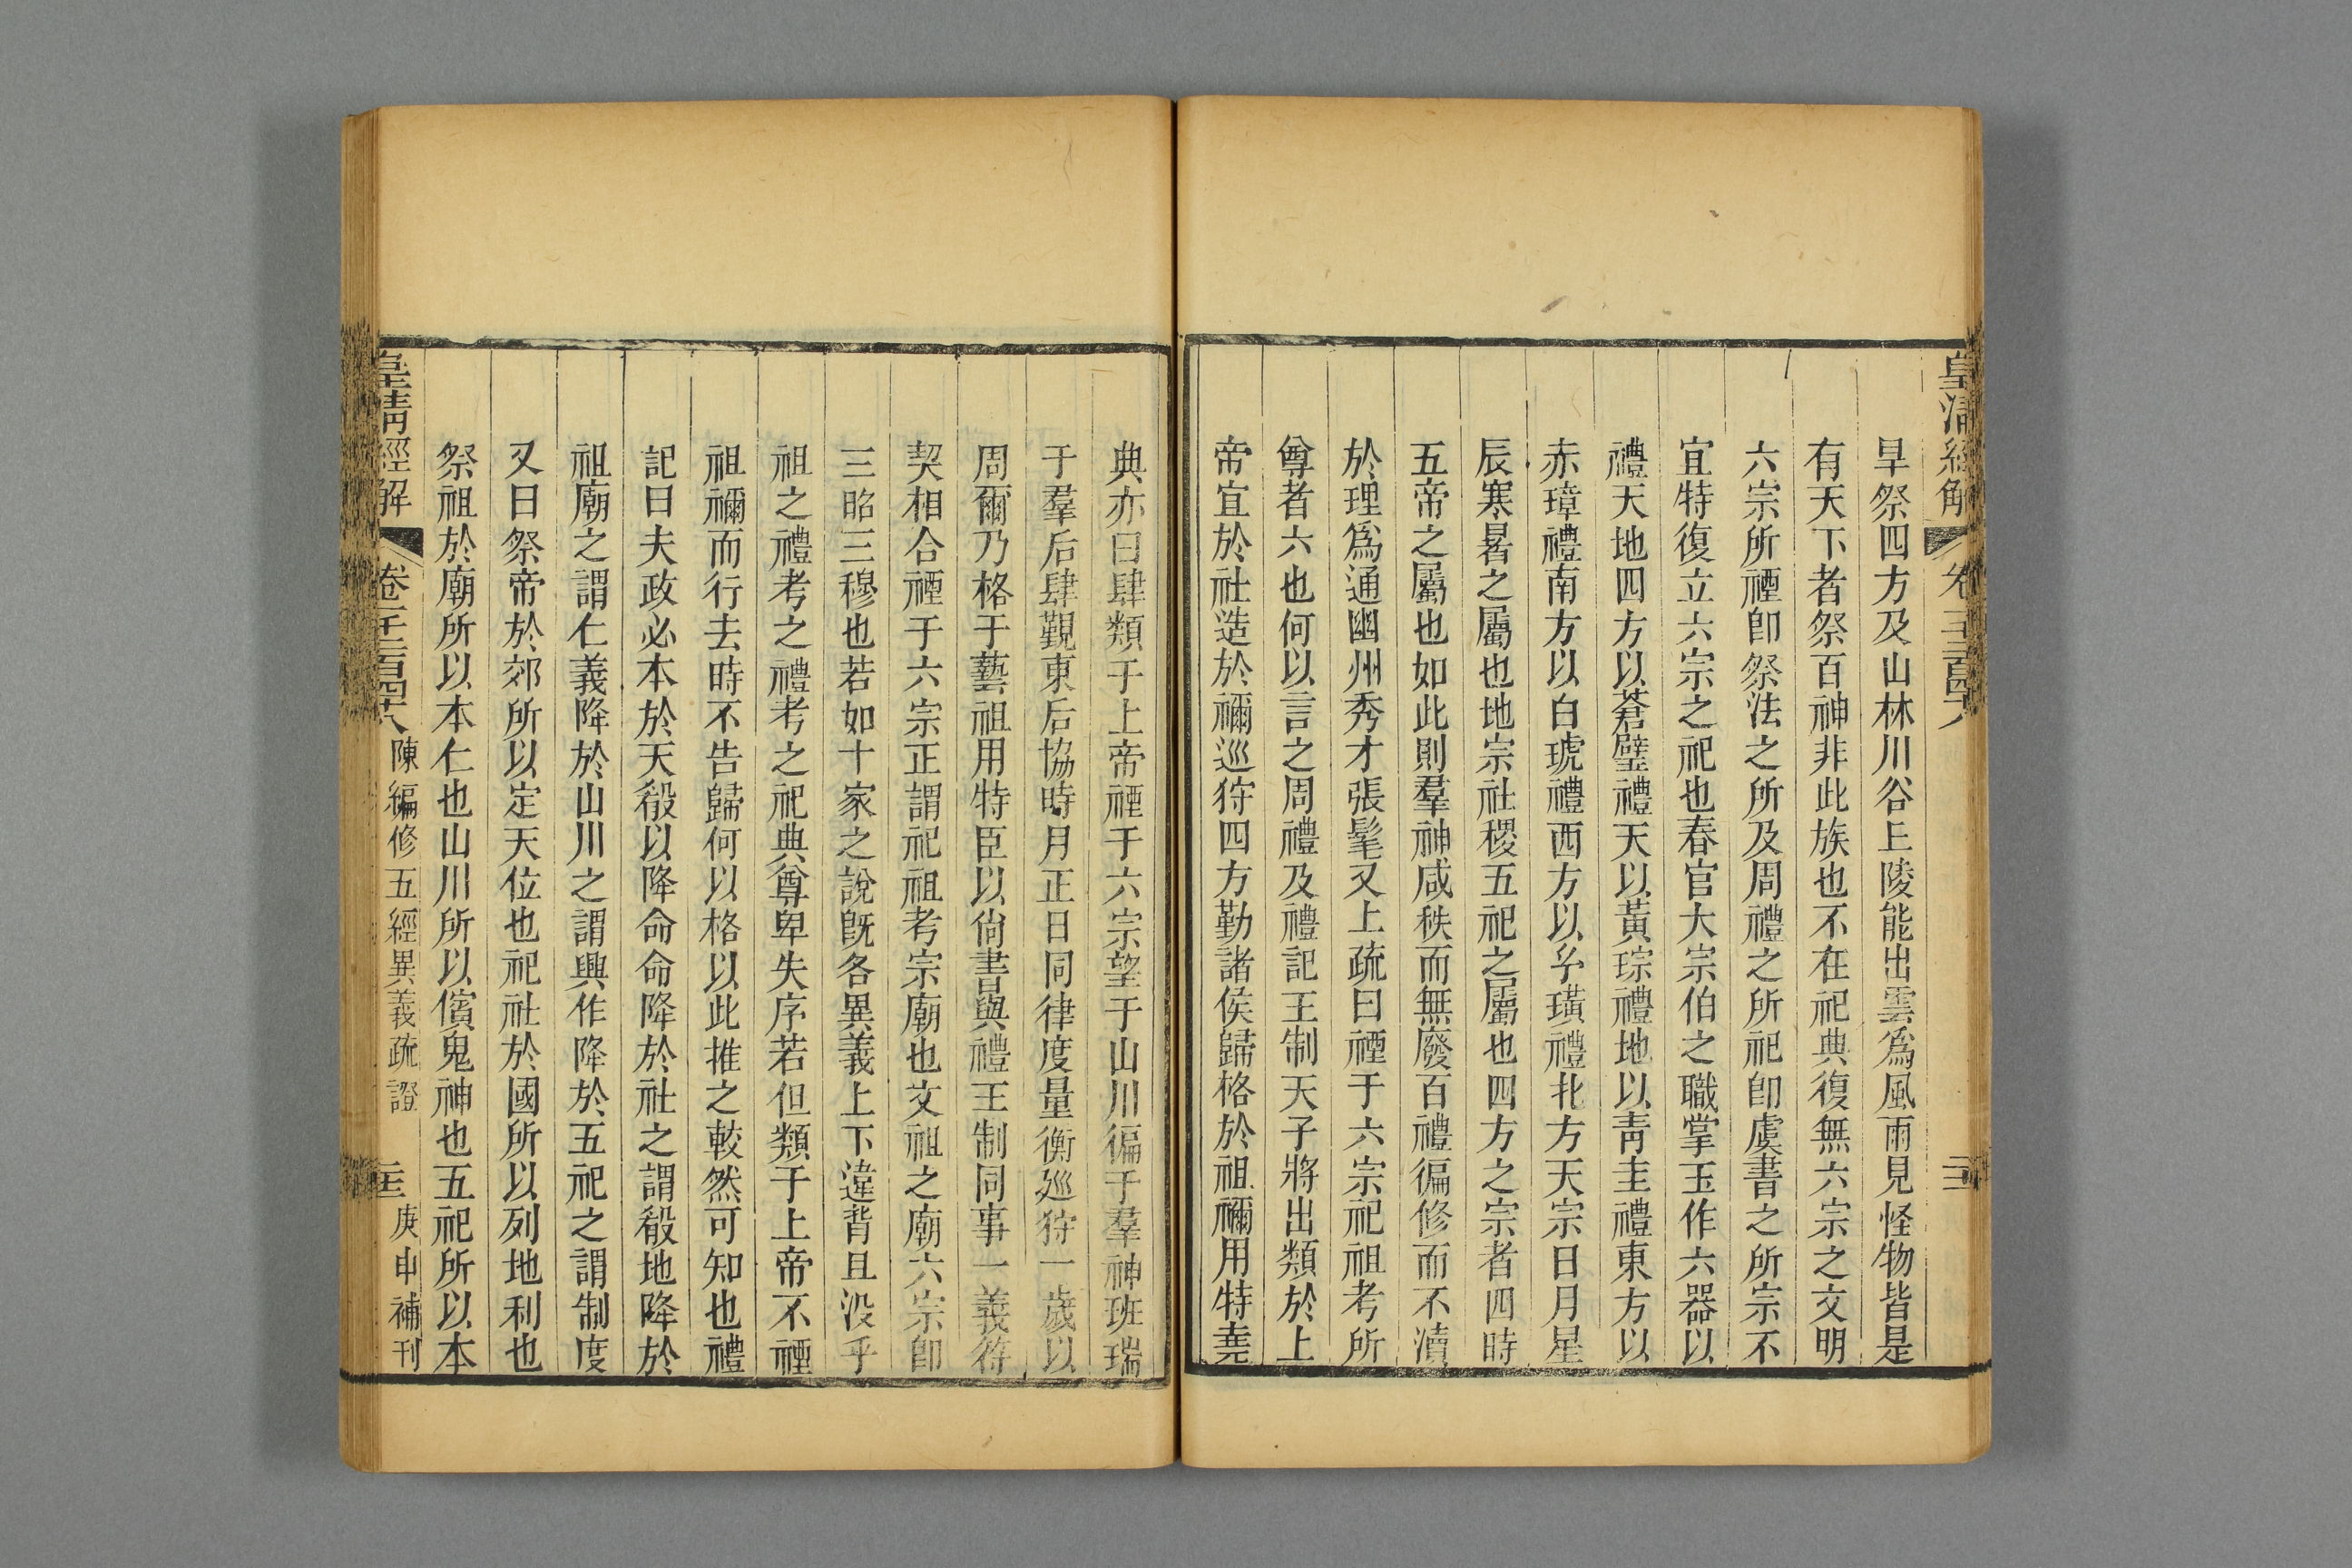 皇清經解
旱祭四方及山林川谷丘陵能出雲爲風雨見怪物皆是
有天下者祭百神非此族也不在祀典復無六宗之文明
六宗所禋卽祭法之所及周禮之所祀卽虞書之所宗不
宜特復立六宗之祀也春官大宗伯之職掌玉作六器以
禮天地四方以蒼璧禮天以黃琮禮地以靑圭禮東方以
赤璋禮南方以白琥禮西方以玄璜禮北方天宗日月星
辰寒暑之屬也地宗社稷五祀之屬也四方之宗者四時
五帝之屬也如此則羣神咸秩而無廢百禮徧修而不瀆
於理爲通幽州秀才張髦又上疏曰禋于六宗祀祖考所
尊者六也何以言之周禮及禮記王制天子將出類於上
帝宜於社造於禰巡狩四方勤諸侯歸格於祖禰用特堯
典亦曰肆類于上帝禋于六宗望于山川徧于羣神班瑞
于羣后肆覲東后協時月正日同律度量衡巡狩一歲以
周爾乃格于藝祖用特臣以尙書與禮王制同事一義符
契相合禋于六宗正謂祀祖考宗廟也文祖之廟六宗卽
三昭三穆也若如十家之說旣各異義上下違背且沒乎
祖之禮考之禮考之祀典尊卑失序若但類于上帝不禋
祖禰而行去時不告歸何以格以此推之較然可知也禮
記曰夫政必本於天殽以降命命降於社之謂殽地降於
祖廟之謂仁義降於山川之謂興作降於五祀之謂制度
又曰祭帝於郊所以定天位也祀社於國所以列地利也
祭祖於廟所以本仁也山川所以儐鬼神也五祀所以本
皇清經解 卷千二百四十八 陳編修五經異義疏證 庚申補刊